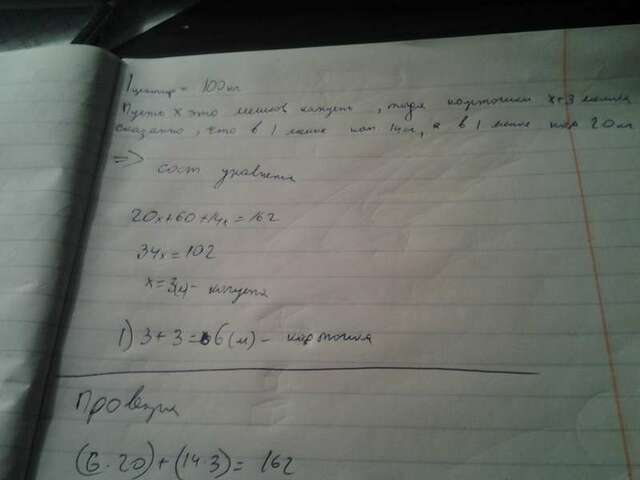 1 центнер = 100 кг
Пусть x это мешков капусты, тогда картошки x+3 мешка
сказано, что в 1 мешке кап 14кг, а в 1 мешке кар 20 кг
=> сост уравнения
20x+60+14x=162
34x=102
x=3(м)- капуста
1) 3+3=6(м)- картошка
Проверка
(6·20)+(14·3)=162